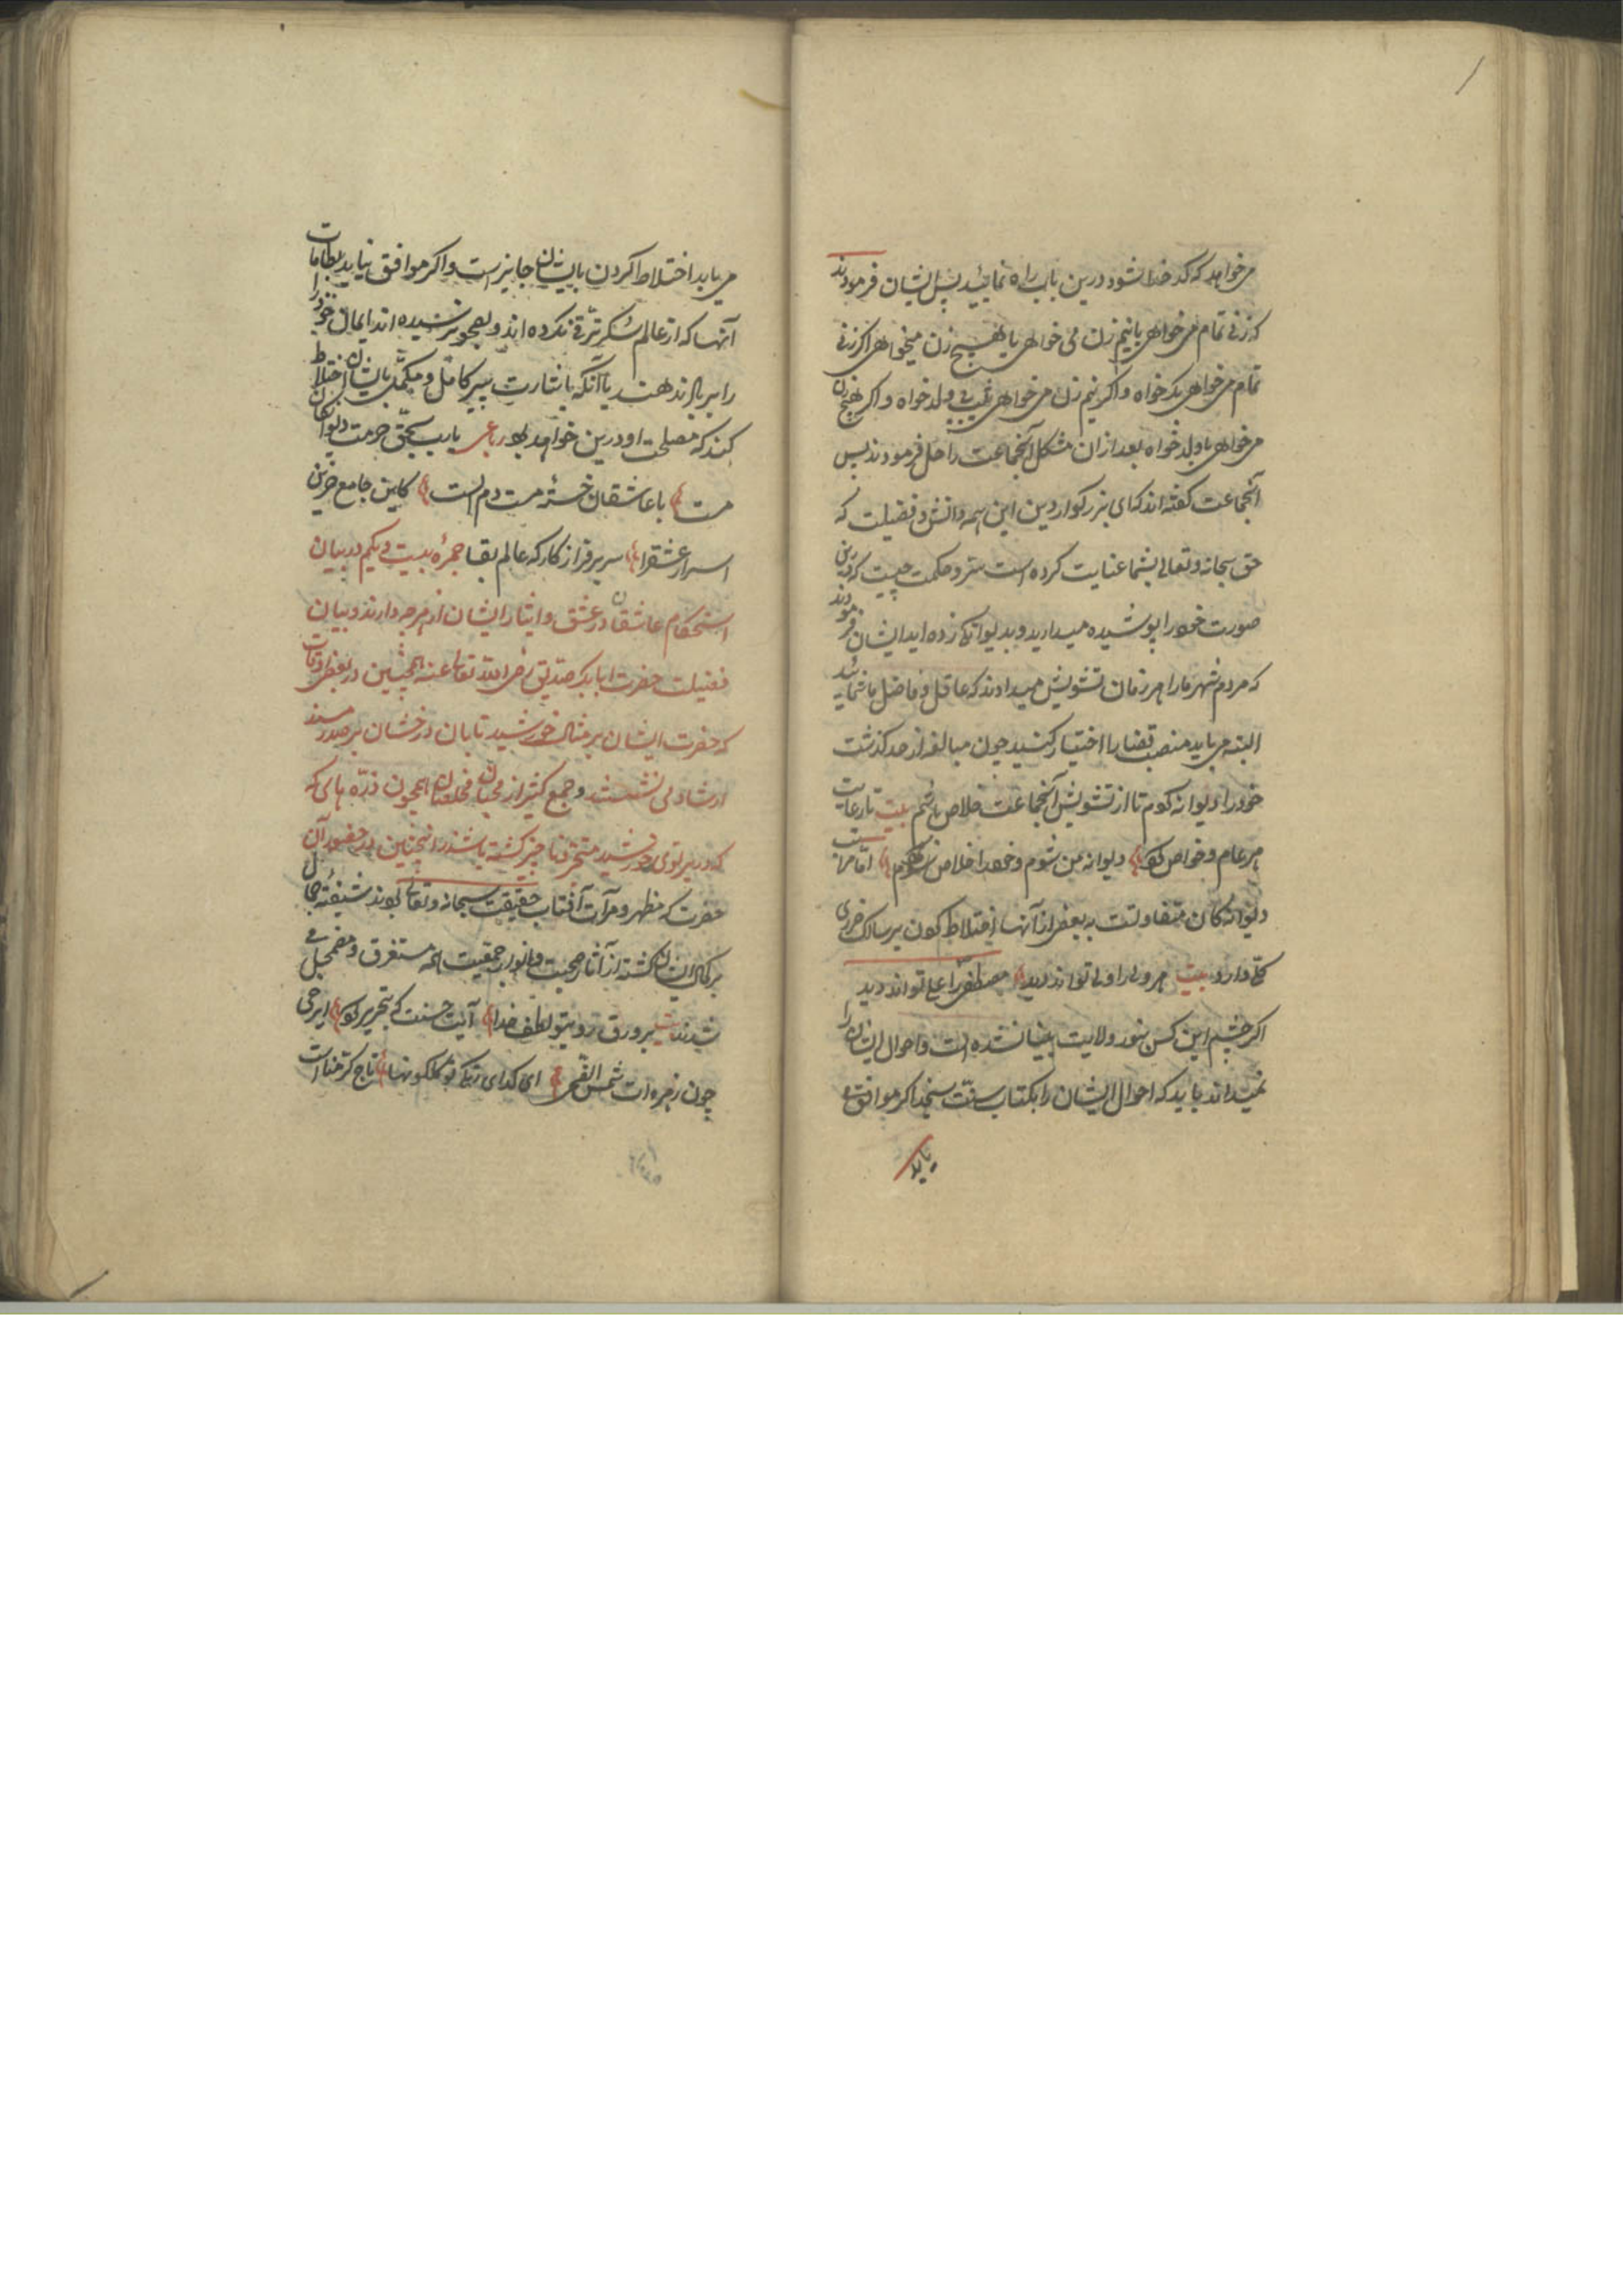 می خواهد که کدخدا شود درین باب راه نمائید پس ایشان فرمودند
که زنی تمام می خواهی یا نیم زن می خواهی یا هیچ زن میخواهی اکر زنی
تمام می خواهی بکر خواه و اکر نیم زن می خواهی ثیب بی ولد خواه و اکر هیچ زن
می خواهی با ولد خواه بعد ازان مشکل آنجماعت را حل فرمودند پس
آنجماعت کفته اند که ای بزرکوار دین این همه دانش و فضیلت که
حق سبحانه و تعالی بشما عنایت کرده است ستر و حکمت چیست که درین
صورت خود را پوشیده میدارید و بدیوانکی زده اید ایشان فرمودند
که مردم شهر مارا هر زمان تشویش میدادند که عاقل و فاضل ما شمائید
البته می باید منصب قضا را اختیار کنید چون مبالغه از حد کذشت
خود را دیوانه کردم تا از تشویش آنجماعت خلاص باشم بیت تا رعایت
هر عام و خواص کو دیوانه من شوم و خود را خلاص کنم اما مراتب
دیوانه کان متفاوتست به بعضی از آنها اختلاط کردن بر سالک ضرری
کلی دارد بیت هر ولی را ولی تواند دید مصطفی را علی تواند دید
اکر چشم این کس بنور ولایت بینا نشده است و احوال ایشان را
نمیداند باید که احوال ایشان را بکتاب سنت سنجد اکر موافق
یابد
می یابد اختلاط کردن با ایشان جایز است و اکر موافق نیابد بطامات
آنها که از عالم شکر ترقی نکرده اند و بصحو نرسیده اند ایمان خود را
را بر باد ندهند یا آنکه باشارت پیر کامل و مکمل با ایشان اختلاط
کند که مصلحت او درین خواهد بود رباعی یا رب بحق حرمت دیوانکان
مست با عاشقان خسته مست دم الست کاین جامع حزین
اسرار عشق را سر بر فراز کارکه عالم بقا جمره بیست و یکم در بیان
استحکام عاشقان در عشق و ایثار ایشان از هر چه دارند و بیان
فضیلت حضرت ابابکر صدیق رضی الله تعالی عنه همچنین در بعضی اوقات
که حضرت ایشان بر مثال خورشید تابان درخشان بر صدر مسند
ارشاد می نشستند و جمع کثیر از محبان مخلصان همچون ذره های که
که در پرتوی خورشید متحرق نا چیز کشته باشند انچنین در حضور آن
حضرت که مظهر و مرآت آفتاب حقیقت سبحانه و تعالی بودند شیفته جمال
بر کمال ایشان کشته از آثار صحبت و انوار جمعیت همه مستغرق و مضمحل می
شدند بیت بر ورق روی تو لطف خدا آیت حسنست که تحریر کو ای رخی
چون زهره ات شمس الضحی ای کدای رنک تو کلکونها تاج کرمناست